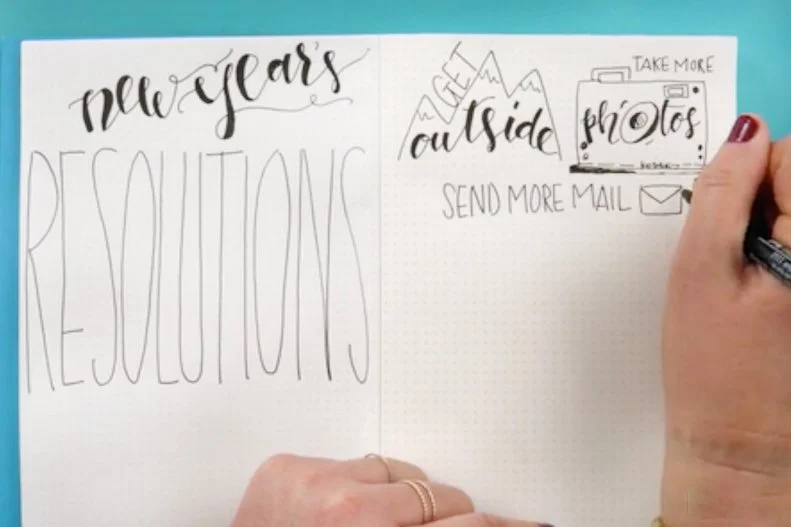 new year's
RESOLUTIONS
GET
outside
TAKE MORE
photos
SEND MORE MAIL